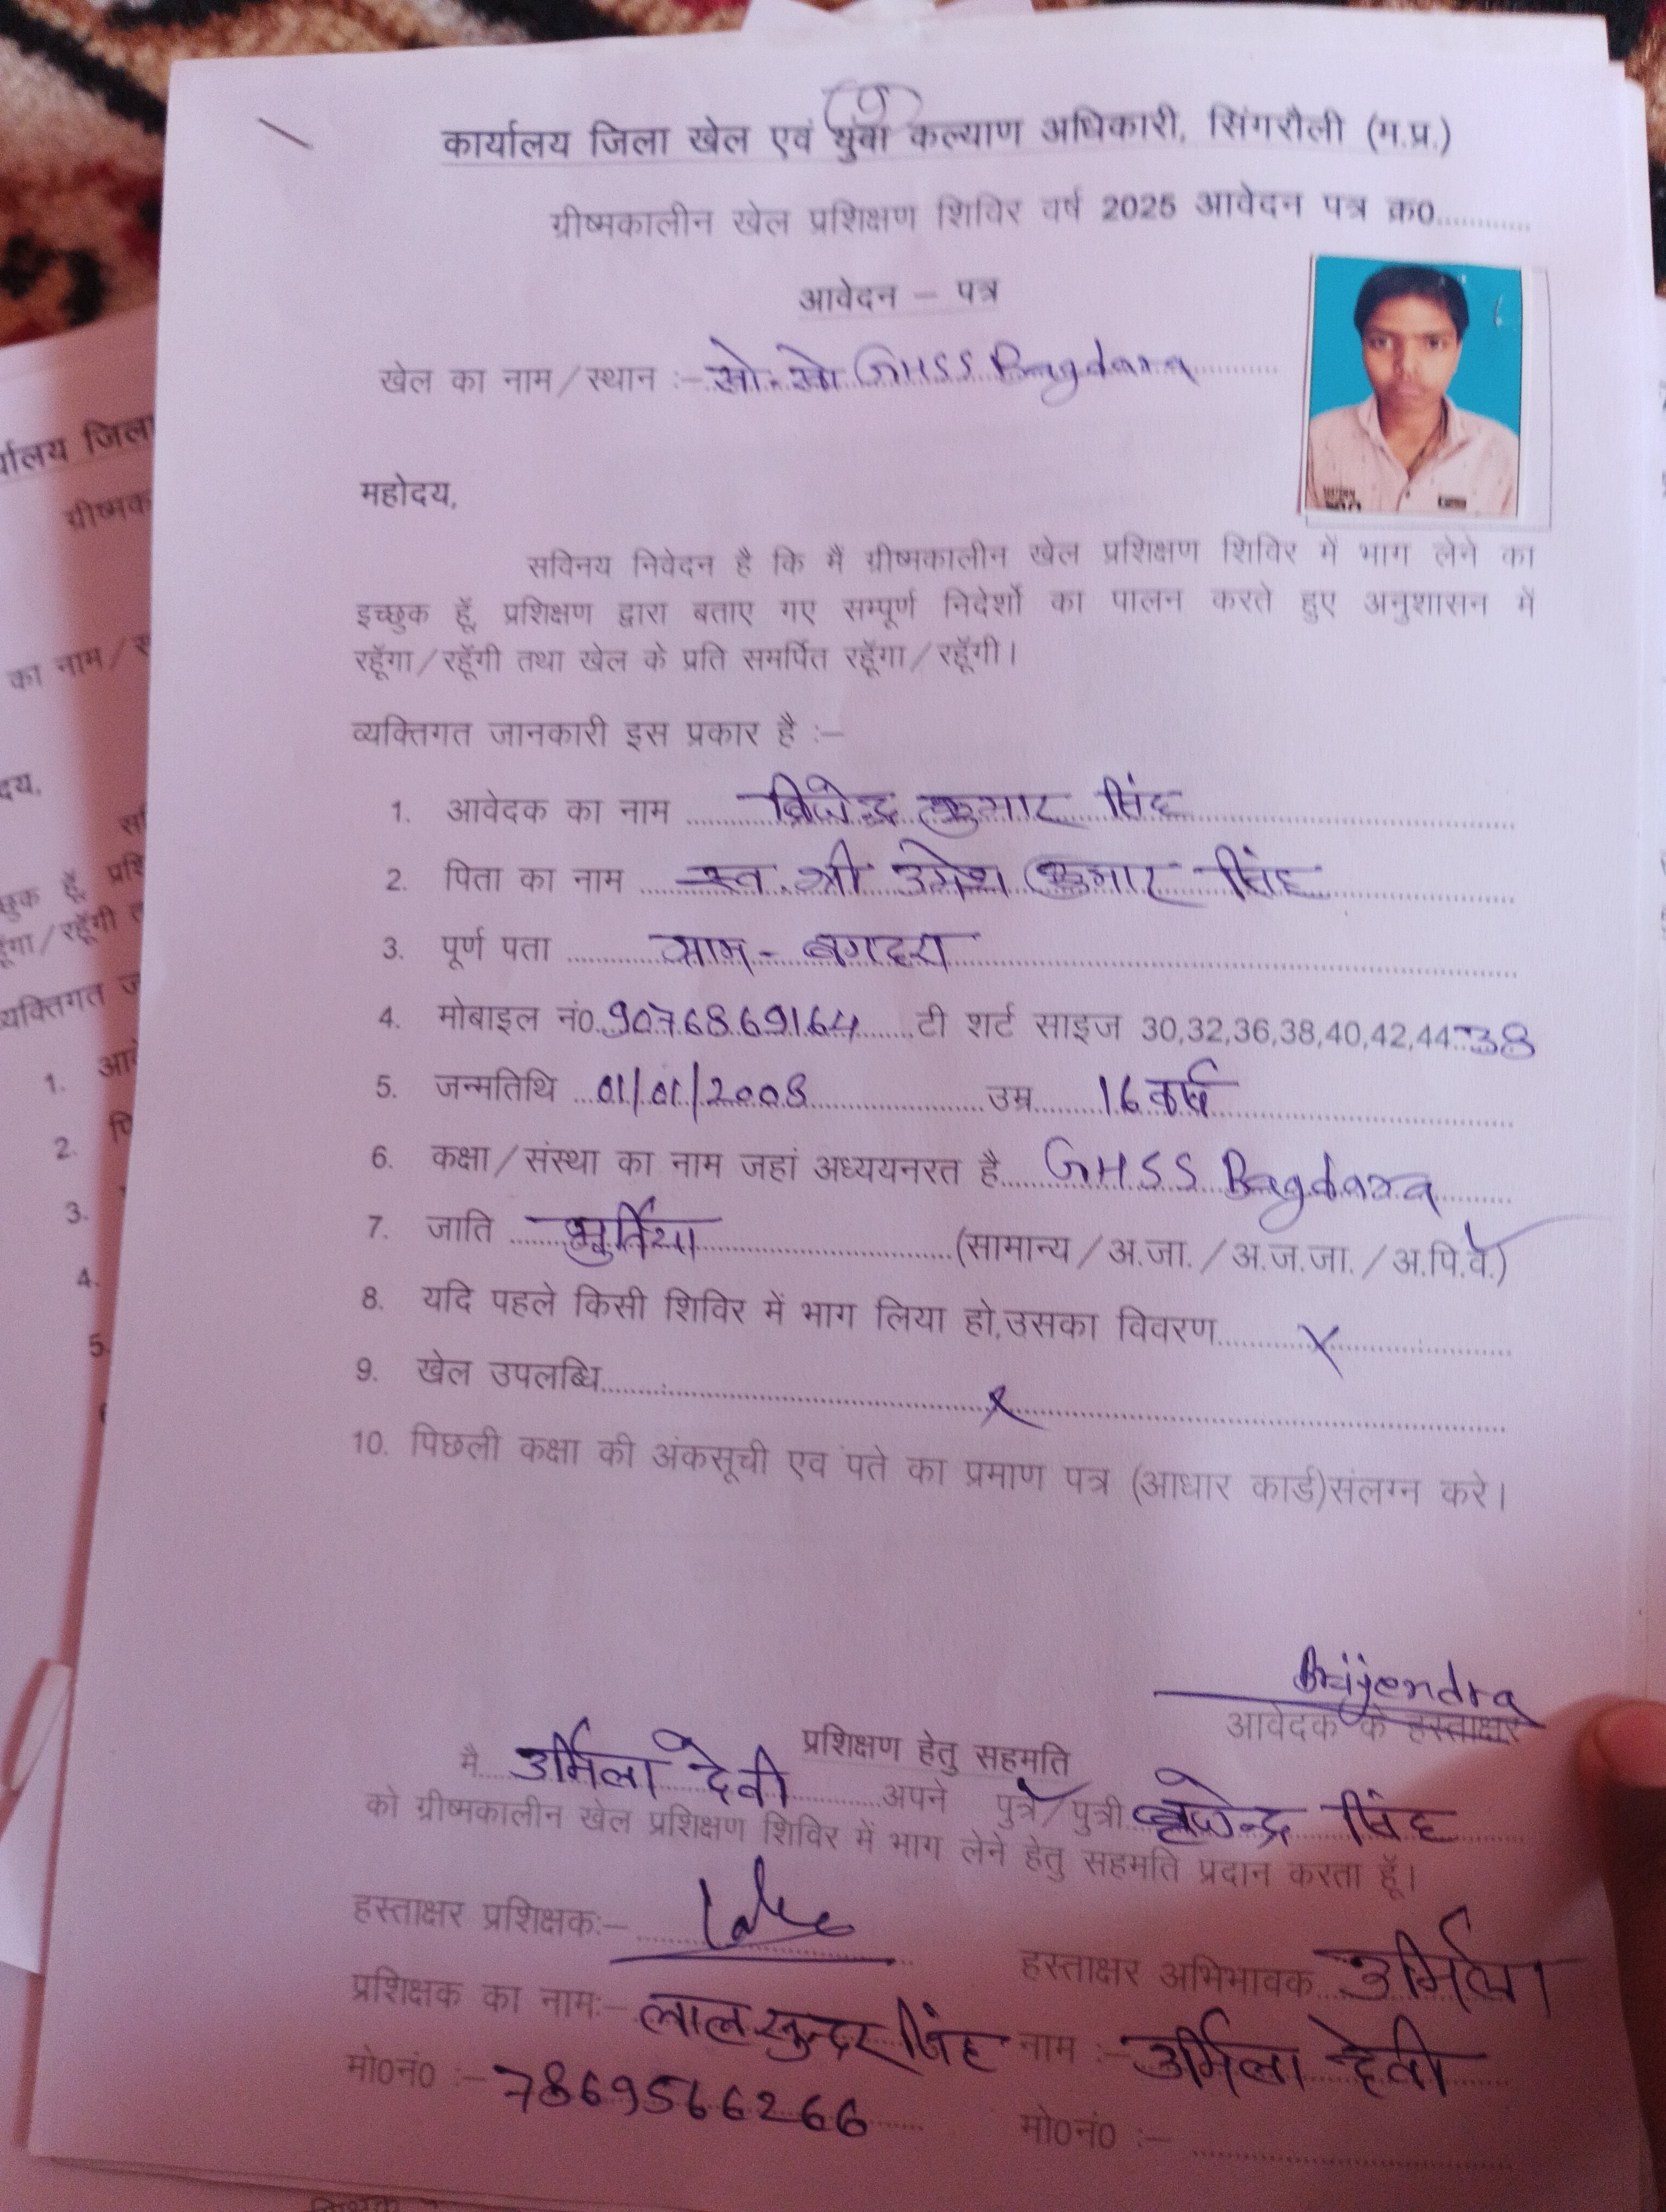 कार्यालय जिला खेल एवं युवा कल्याण अधिकारी, सिंगरौली (म.प्र.)
ग्रीष्मकालीन खेल प्रशिक्षण शिविर वर्ष 2025 आवेदन पत्र क्र0............
आवेदन – पत्र
खेल का नाम/स्थान :- खो-खो GHSS Bagdara
महोदय,
सविनय निवेदन है कि मैं ग्रीष्मकालीन खेल प्रशिक्षण शिविर में भाग लेने का
इच्छुक हूँ, प्रशिक्षण द्वारा बताए गए सम्पूर्ण निदेर्शो का पालन करते हुए अनुशासन में
रहूॅगा/रहूॅगी तथा खेल के प्रति समर्पित रहूॅगा/रहूॅगी।
व्यक्तिगत जानकारी इस प्रकार है :–
1. आवेदक का नाम ब्रिजेन्द्र कुमार सिंह
2. पिता का नाम स्व. श्री उमेश कुमार सिंह
3. पूर्ण पता ग्राम - बगदरा
4. मोबाइल नं0. 9076869164 टी शर्ट साइज 30,32,36,38,40,42,44. 38
5. जन्मतिथि 01/01/2008 उम्र 16 वर्ष
6. कक्षा/संस्था का नाम जहां अध्ययनरत है GHSS Bagdara
7. जाति भुर्तिया (सामान्य/अ.जा./अ.ज.जा./अ.पि.वे.)
8. यदि पहले किसी शिविर में भाग लिया हो,उसका विवरण X
9. खेल उपलब्धि X
10. पिछली कक्षा की अंकसूची एव पते का प्रमाण पत्र (आधार कार्ड)संलग्न करे।
Brijendra
आवेदक के हस्ताक्षर
प्रशिक्षण हेतु सहमति
मै उर्मिला देवी अपने पुत्र/पुत्री बृजेन्द्र सिंह
को ग्रीष्मकालीन खेल प्रशिक्षण शिविर में भाग लेने हेतु सहमति प्रदान करता हूॅ।
हस्ताक्षर प्रशिक्षक:–
हस्ताक्षर अभिभावक उर्मिला
प्रशिक्षक का नाम:– लाल सुन्दर सिंह नाम :– उर्मिला देवी
मो0नं0 :– 7869566266
मो0नं0 :–